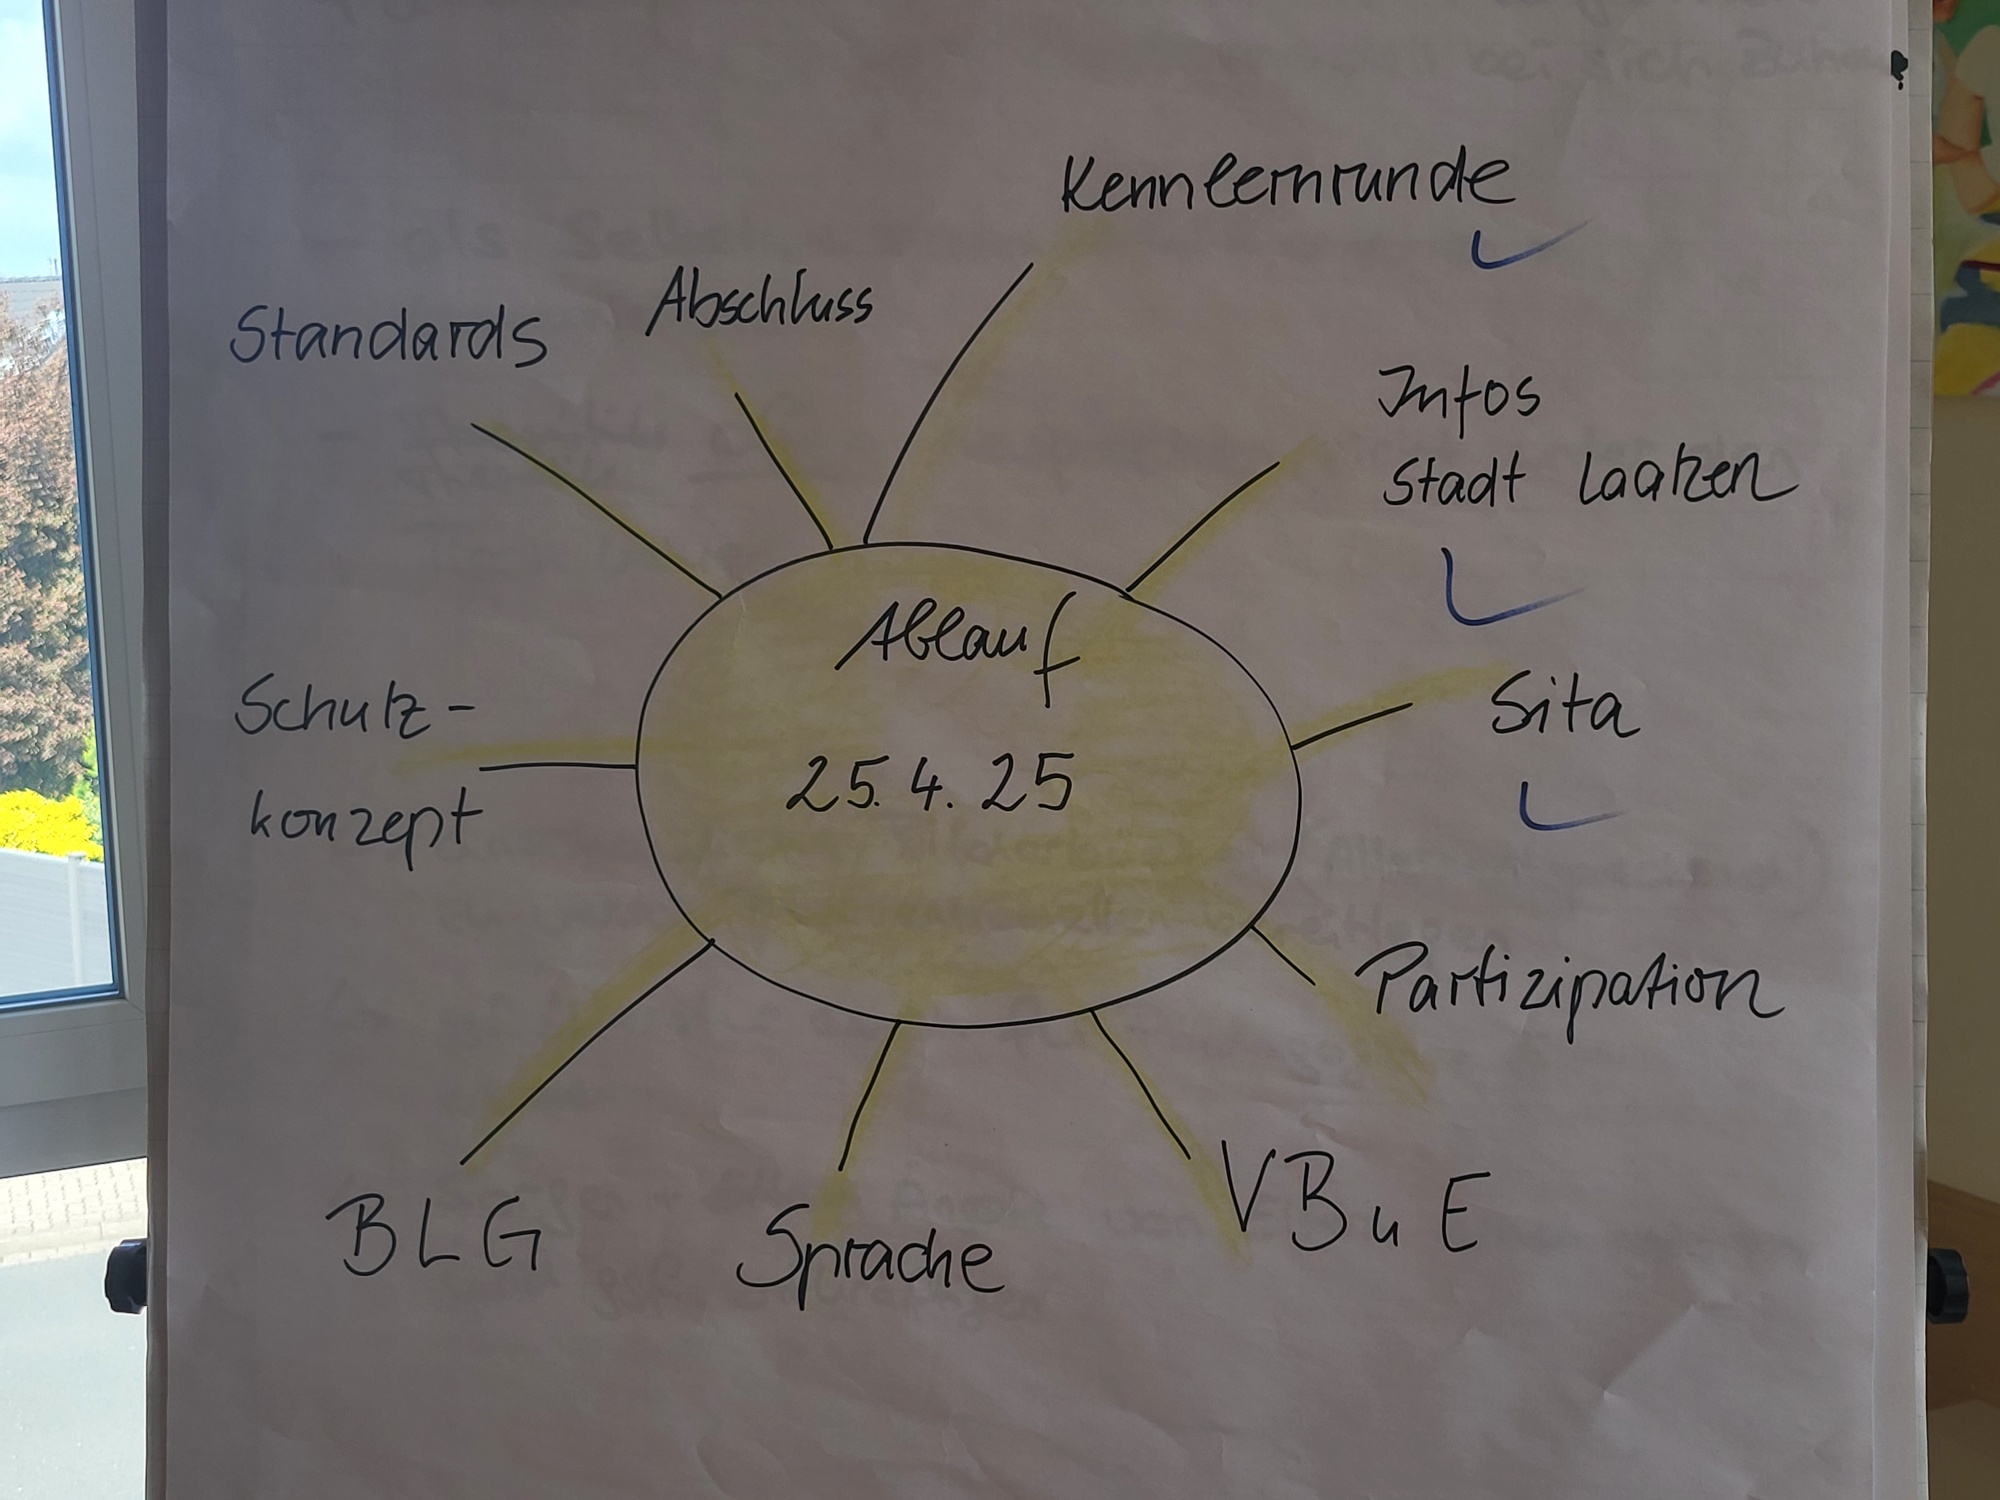 Ablauf
25.4.25
Kennlernrunde
Infos
Stadt Laatzen
Sita
Partizipation
VB u E
Sprache
BLG
Schutz-
konzept
Standards
Abschluss